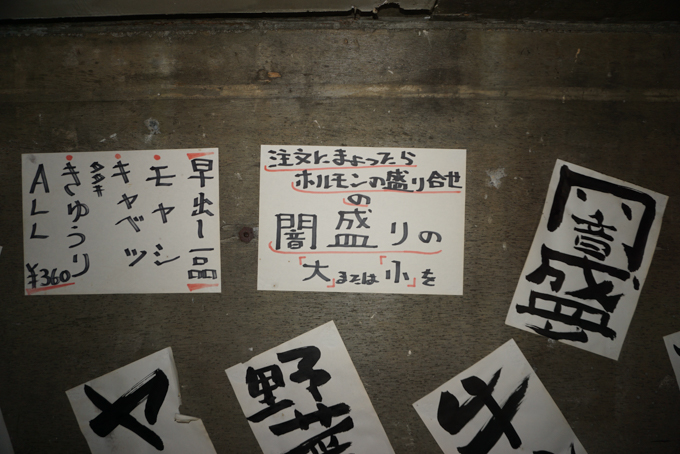 早出し一品
モヤシ
キャベツ
きゅうり
ALL
¥360
注文にまよったら
ホルモンの盛り合せ
の
闇盛りの
「大」または「小」を
闇盛
野菜